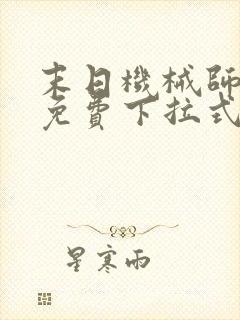 末日機械師
免費下拉式
星寒雨